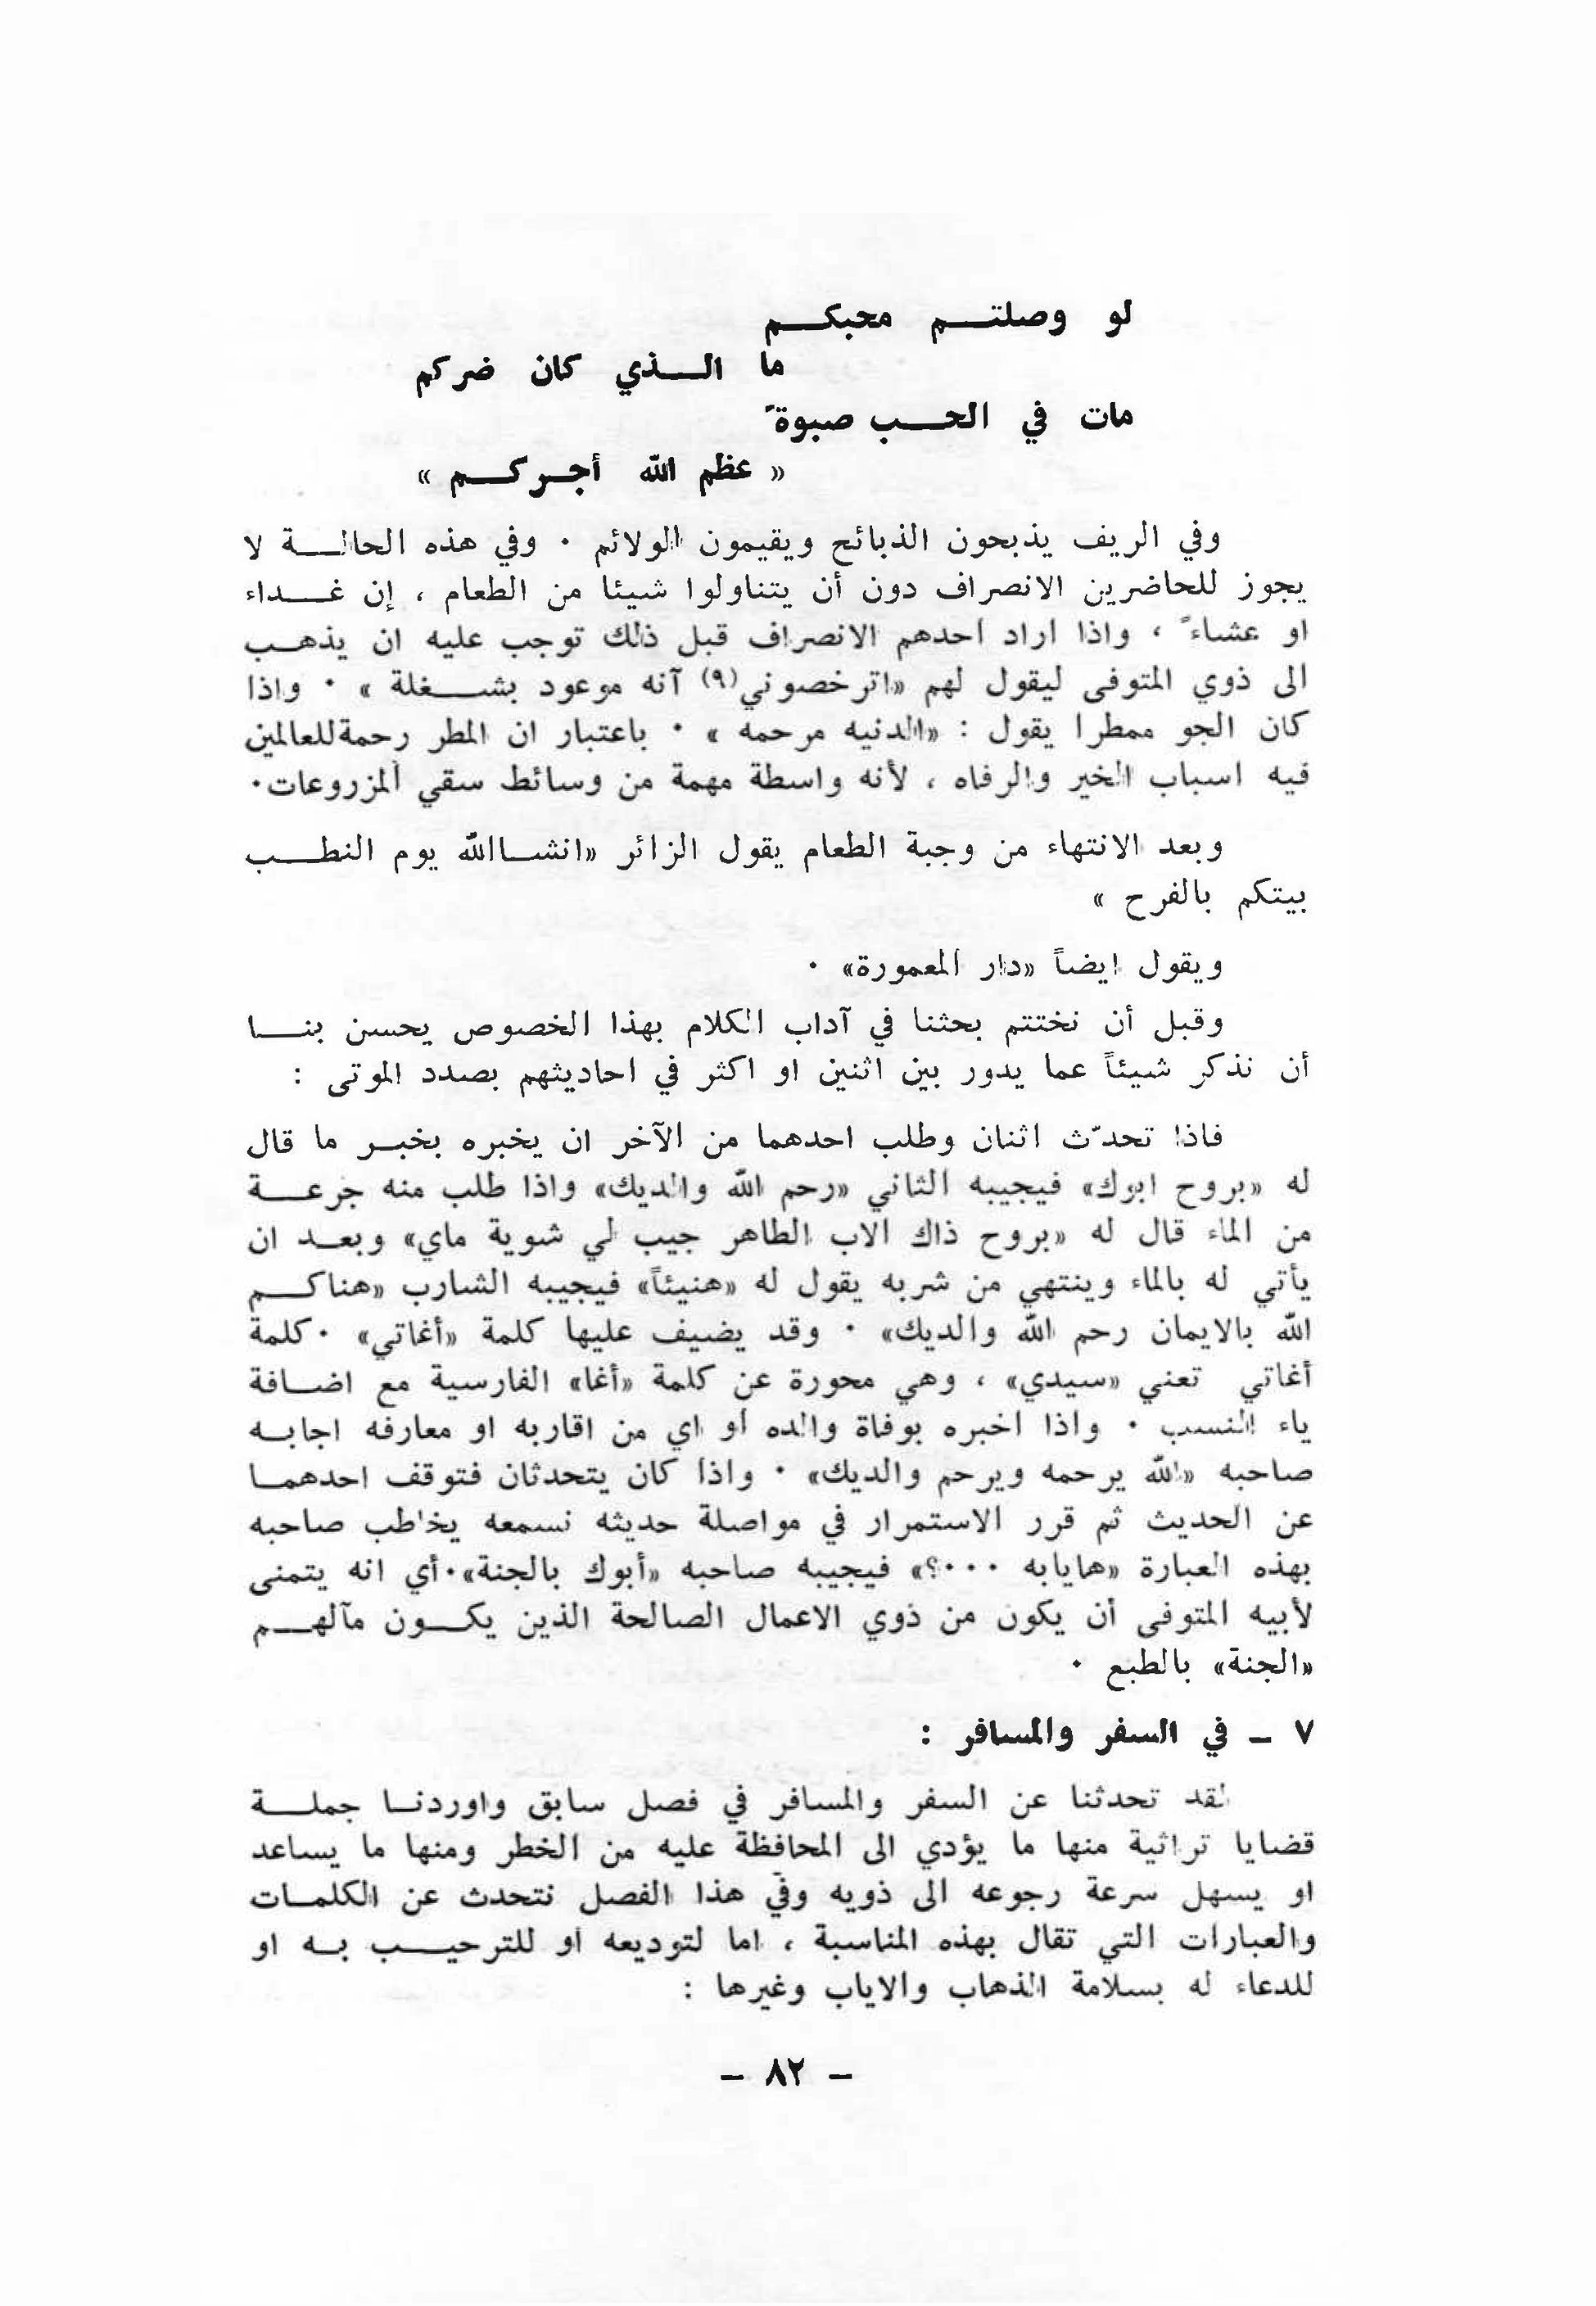 لو وصلتم محبكم
ما الذي كان ضركم
مات في الحب صبوةً
« عظم الله أجركم »
وفي الريف يذبحون الذبائح ويقيمون الولائم . وفي هذه الحالة لا
يجوز للحاضرين الانصراف دون أن يتناولوا شيئا من الطعام ، إن غداء
او عشاءً ، واذا اراد احدهم الانصراف قبل ذلك توجب عليه ان يذهب
الى ذوي المتوفى ليقول لهم «اترخصوني(٩) آنه موعود بشغلة » . واذا
كان الجو ممطرا يقول : «الدنيه مرحمه » . باعتبار ان المطر رحمة للعالمين
فيه اسباب الخير والرفاه ، لأنه واسطة مهمة من وسائط سقي المزروعات.
وبعد الانتهاء من وجبة الطعام يقول الزائر «انشاالله يوم النطب
بيتكم بالفرح »
ويقول ايضاً «دار المعمورة» .
وقبل أن نختتم بحثنا في آداب الكلام بهذا الخصوص يحسن بنا
أن نذكر شيئاً عما يدور بين اثنين او اكثر في احاديثهم بصدد الموتى :
فاذا تحدّث اثنان وطلب احدهما من الآخر ان يخبره بخبر ما قال
له «بروح ابوك» فيجيبه الثاني «رحم الله والديك» واذا طلب منه جرعة
من الماء قال له «بروح ذاك الاب الطاهر جيب لي شوية ماي» وبعد ان
يأتي له بالماء وينتهي من شربه يقول له «هنيئاً» فيجيبه الشارب «هناكم
الله بالايمان رحم الله والديك» . وقد يضيف عليها كلمة «أغاتي» . كلمة
أغاتي تعني «سيدي» ، وهي محورة عن كلمة «أغا» الفارسية مع اضافة
ياء النسب . واذا اخبره بوفاة والده او اي من اقاربه او معارفه اجابه
صاحبه «الله يرحمه ويرحم والديك» . واذا كان يتحدثان فتوقف احدهما
عن الحديث ثم قرر الاستمرار في مواصلة حديثه نسمعه يخاطب صاحبه
بهذه العبارة «هايابه ...؟» فيجيبه صاحبه «أبوك بالجنة».أي انه يتمنى
لأبيه المتوفى أن يكون من ذوي الاعمال الصالحة الذين يكون مآلهم
«الجنة» بالطبع .
٧ – في السفر والمسافر :
لقد تحدثنا عن السفر والمسافر في فصل سابق واوردنا جملة
قضايا تراثية منها ما يؤدي الى المحافظة عليه من الخطر ومنها ما يساعد
او يسهل سرعة رجوعه الى ذويه وفي هذا الفصل نتحدث عن الكلمات
والعبارات التي تقال بهذه المناسبة ، اما لتوديعه او للترحيب به او
للدعاء له بسلامة الذهاب والاياب وغيرها :
– ٨٢ –